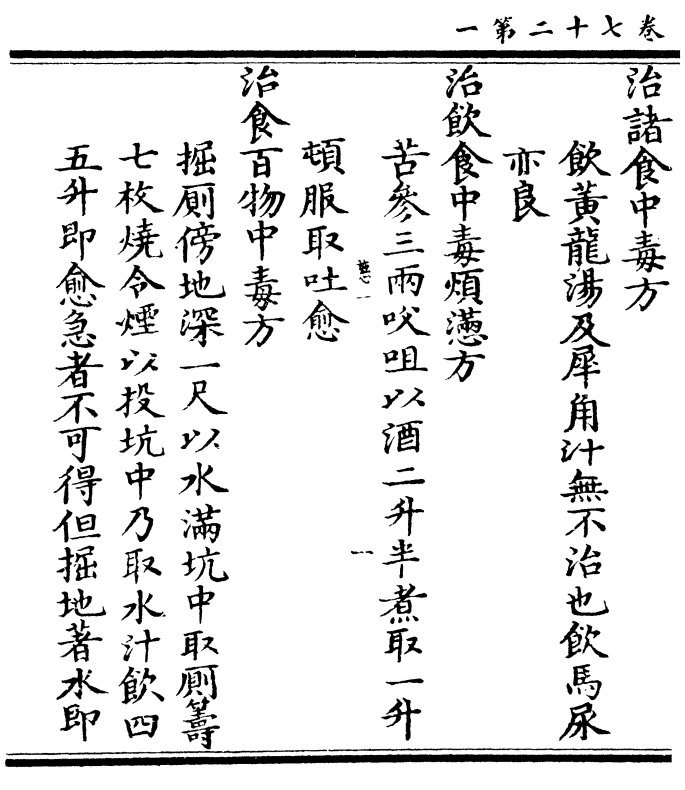 卷七十二第一
治諸食中毒方
飲黃龍湯及犀角汁無不治也飲馬尿
亦良
治飲食中毒煩懣方
苦參三兩㕮咀以酒二升半煮取一升
頓服取吐愈
治食百物中毒方
掘厠傍地深一尺以水滿坑中取厠籌
七枚燒令煙以投坑中乃取水汁飲四
五升即愈急者不可得但掘地著水即